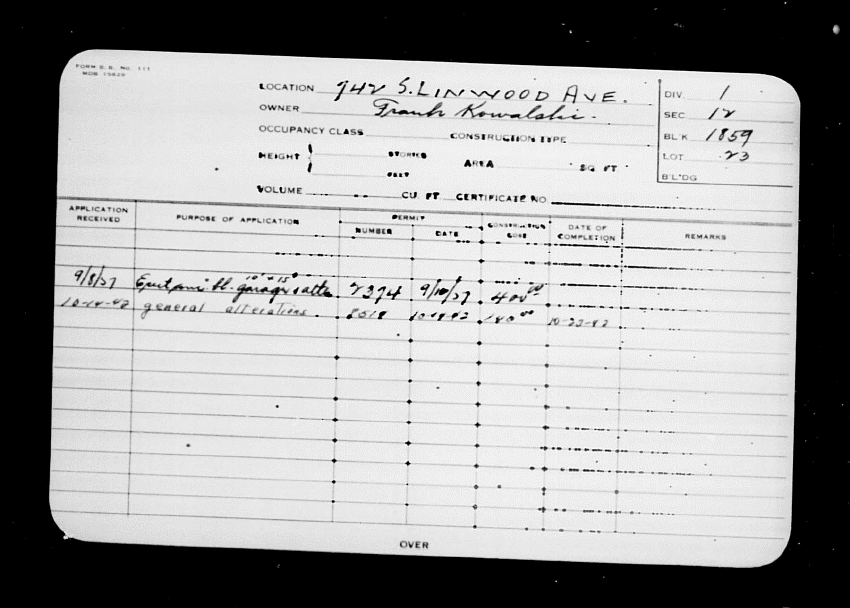 FORM B. B. No. 111
LOCATION 942 S. LINWOOD AVE.
OWNER Frank Kowalski.
OCCUPANCY CLASS CONSTRUCTION TYPE
HEIGHT { STORIES AREA SQ. FT.
FEET
VOLUME CU. FT. CERTIFICATE NO.
DIV. 1
SEC 12
BL'K 1859
LOT 23
B'L'DG
APPLICATION RECEIVED PURPOSE OF APPLICATION PERMIT NUMBER DATE CONSTRUCTION COST DATE OF COMPLETION REMARKS
10' x 15'
9/8/27 garage 2374 9/10/27 400 00
10-14-42 general alterations 10-23-42
OVER